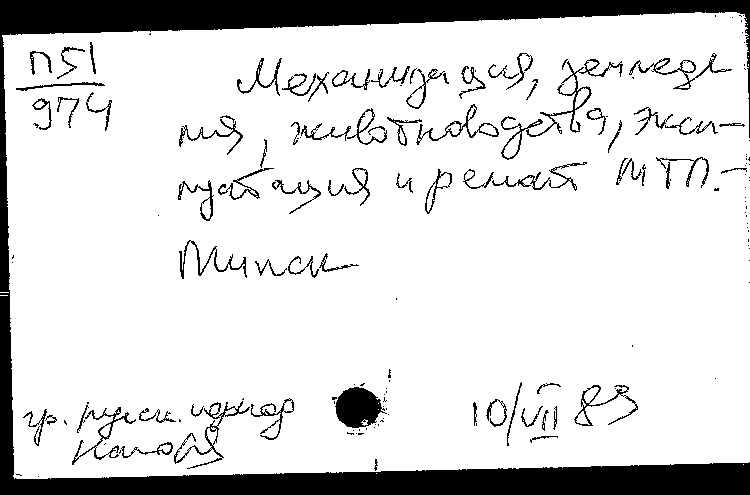 П51
974
Механизация, земледел
ия, животноводства, экс-
плуатация и ремонт МТП.-
Минск
гр. русск. период
10/VII 89